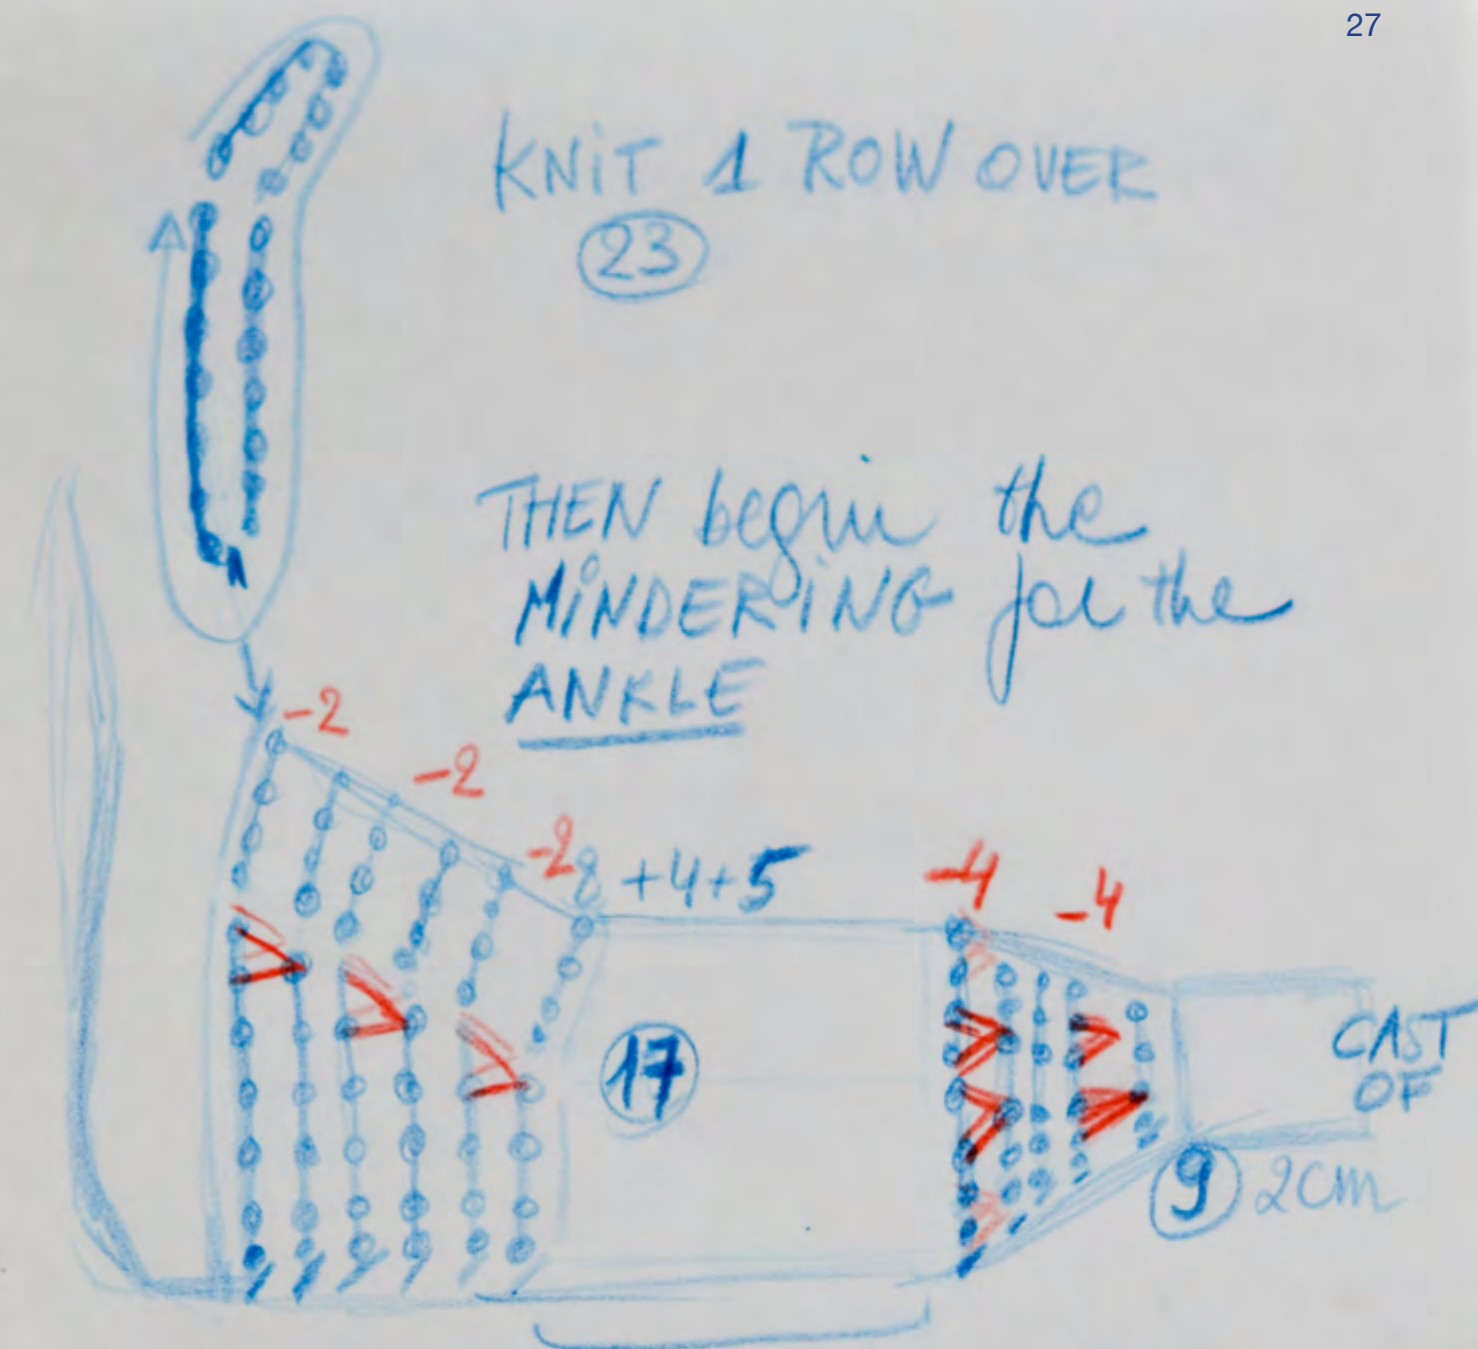 27
KNIT 1 ROW OVER
23
THEN begin the
MINDERING for the
ANKLE
-2
-2
-2
8 +4+5
-4
-4
17
CAST
OF
9 2cm